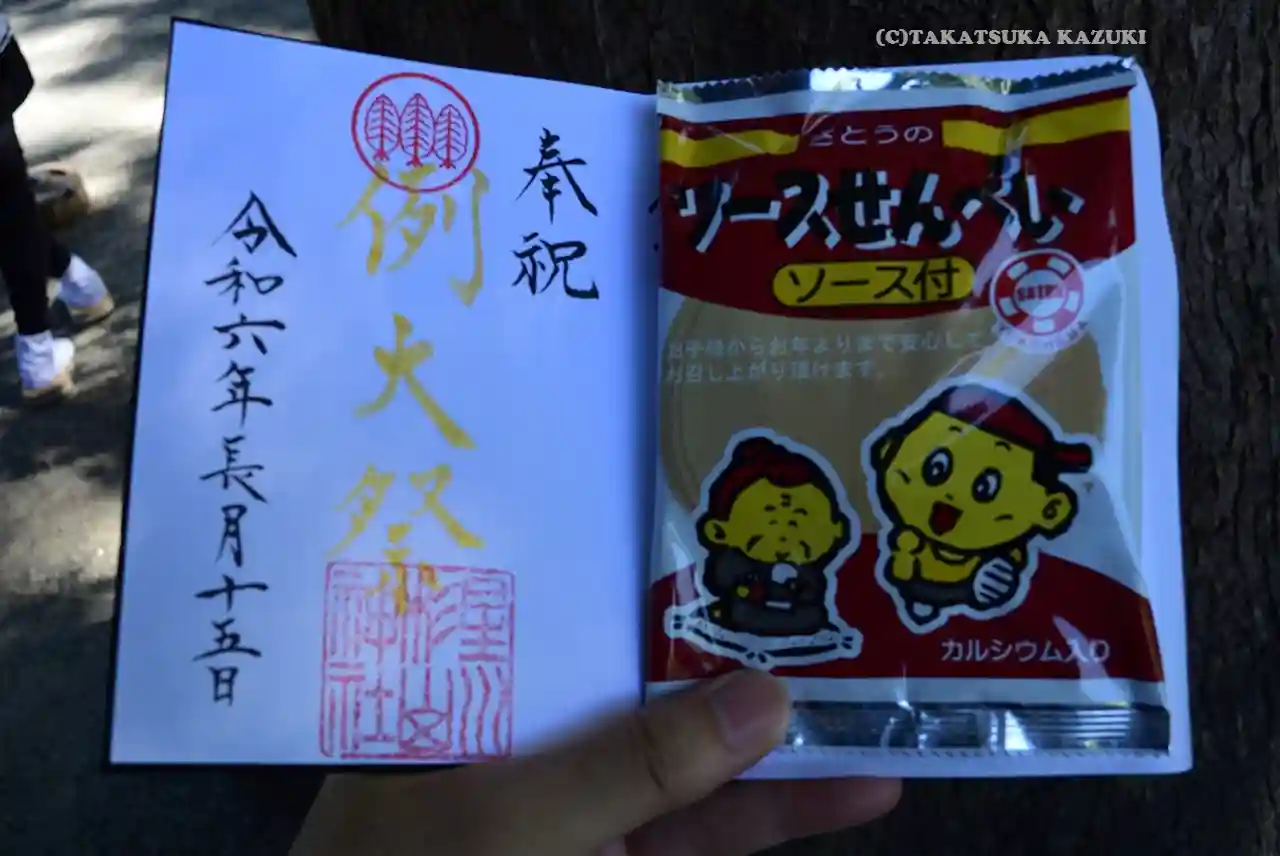 (C)TAKATSUKA KAZUKI
奉祝
例大祭
令和六年長月十五日
神社
さとうの
ソースせんべい
ソース付
お子様からお年よりまで安心して
お召し上がり頂けます。
カルシウム入り